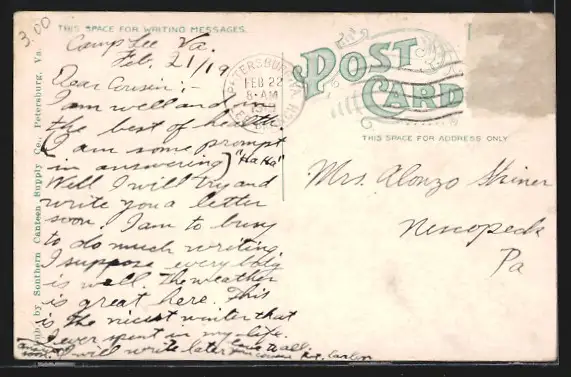 3.00
THIS SPACE FOR WRITING MESSAGES.
Camp Lee Va.
Feb. 21/19
Dear Cousin;-
I am well and in
the best of health.
(I am some prompt
in answering) "Ha Ha"
Well I will try and
write you a letter
soon. I am to busy
to do much writing
I suppose every body
is well. The weather
is great here. This
is the nicest winter that
I ever spent in my life.
I will write later
Love to all.
Ans. soon.
your cousin
Pub. by Southern Canteen Supply Co., Petersburg, Va.
PETERSBURG, VA.
FEB 22
8-AM
POST CARD
THIS SPACE FOR ADDRESS ONLY
Mrs. Alonzo Shiner
Nescopeck
Pa